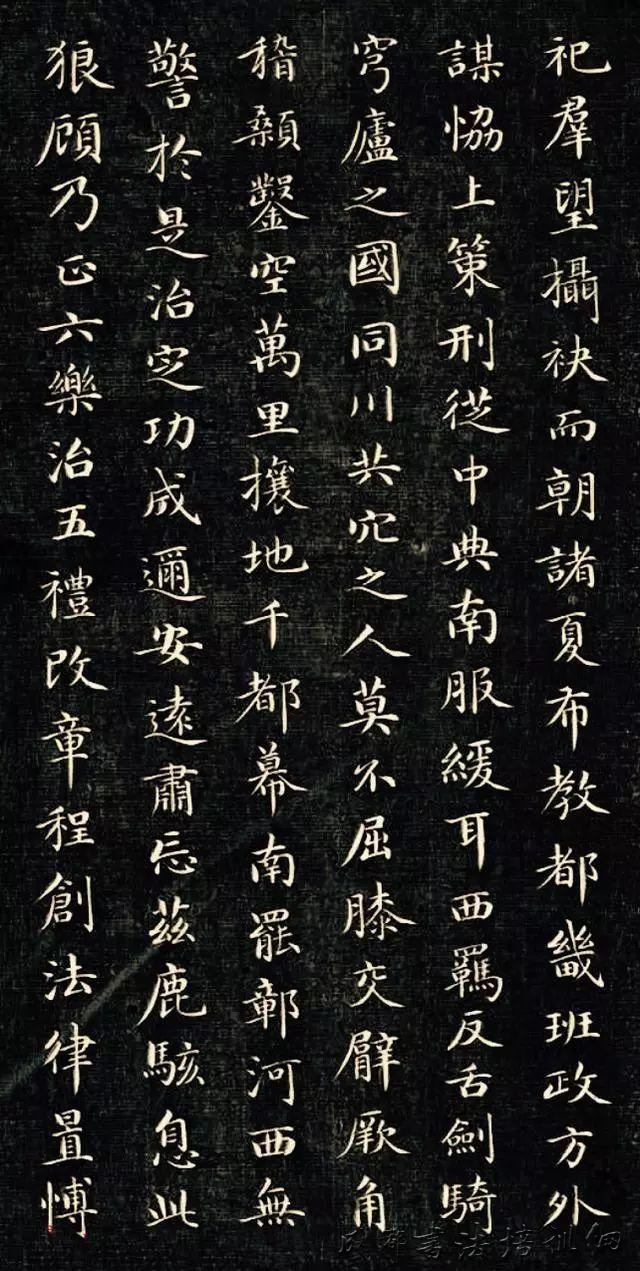 祀羣望攝袂而朝諸夏布教都畿班政方外
謀恊上策刑從中典南服緩耳西羈反舌劍騎
穹廬之國同川共穴之人莫不屈膝交臂厥角
稽顙鑿空萬里攘地千都幕南罷鄣河西無
警於是治定功成邇安遠肅忘茲鹿駭息此
狼顧乃正六樂治五禮改章程創法律置博
成都書法培訓網